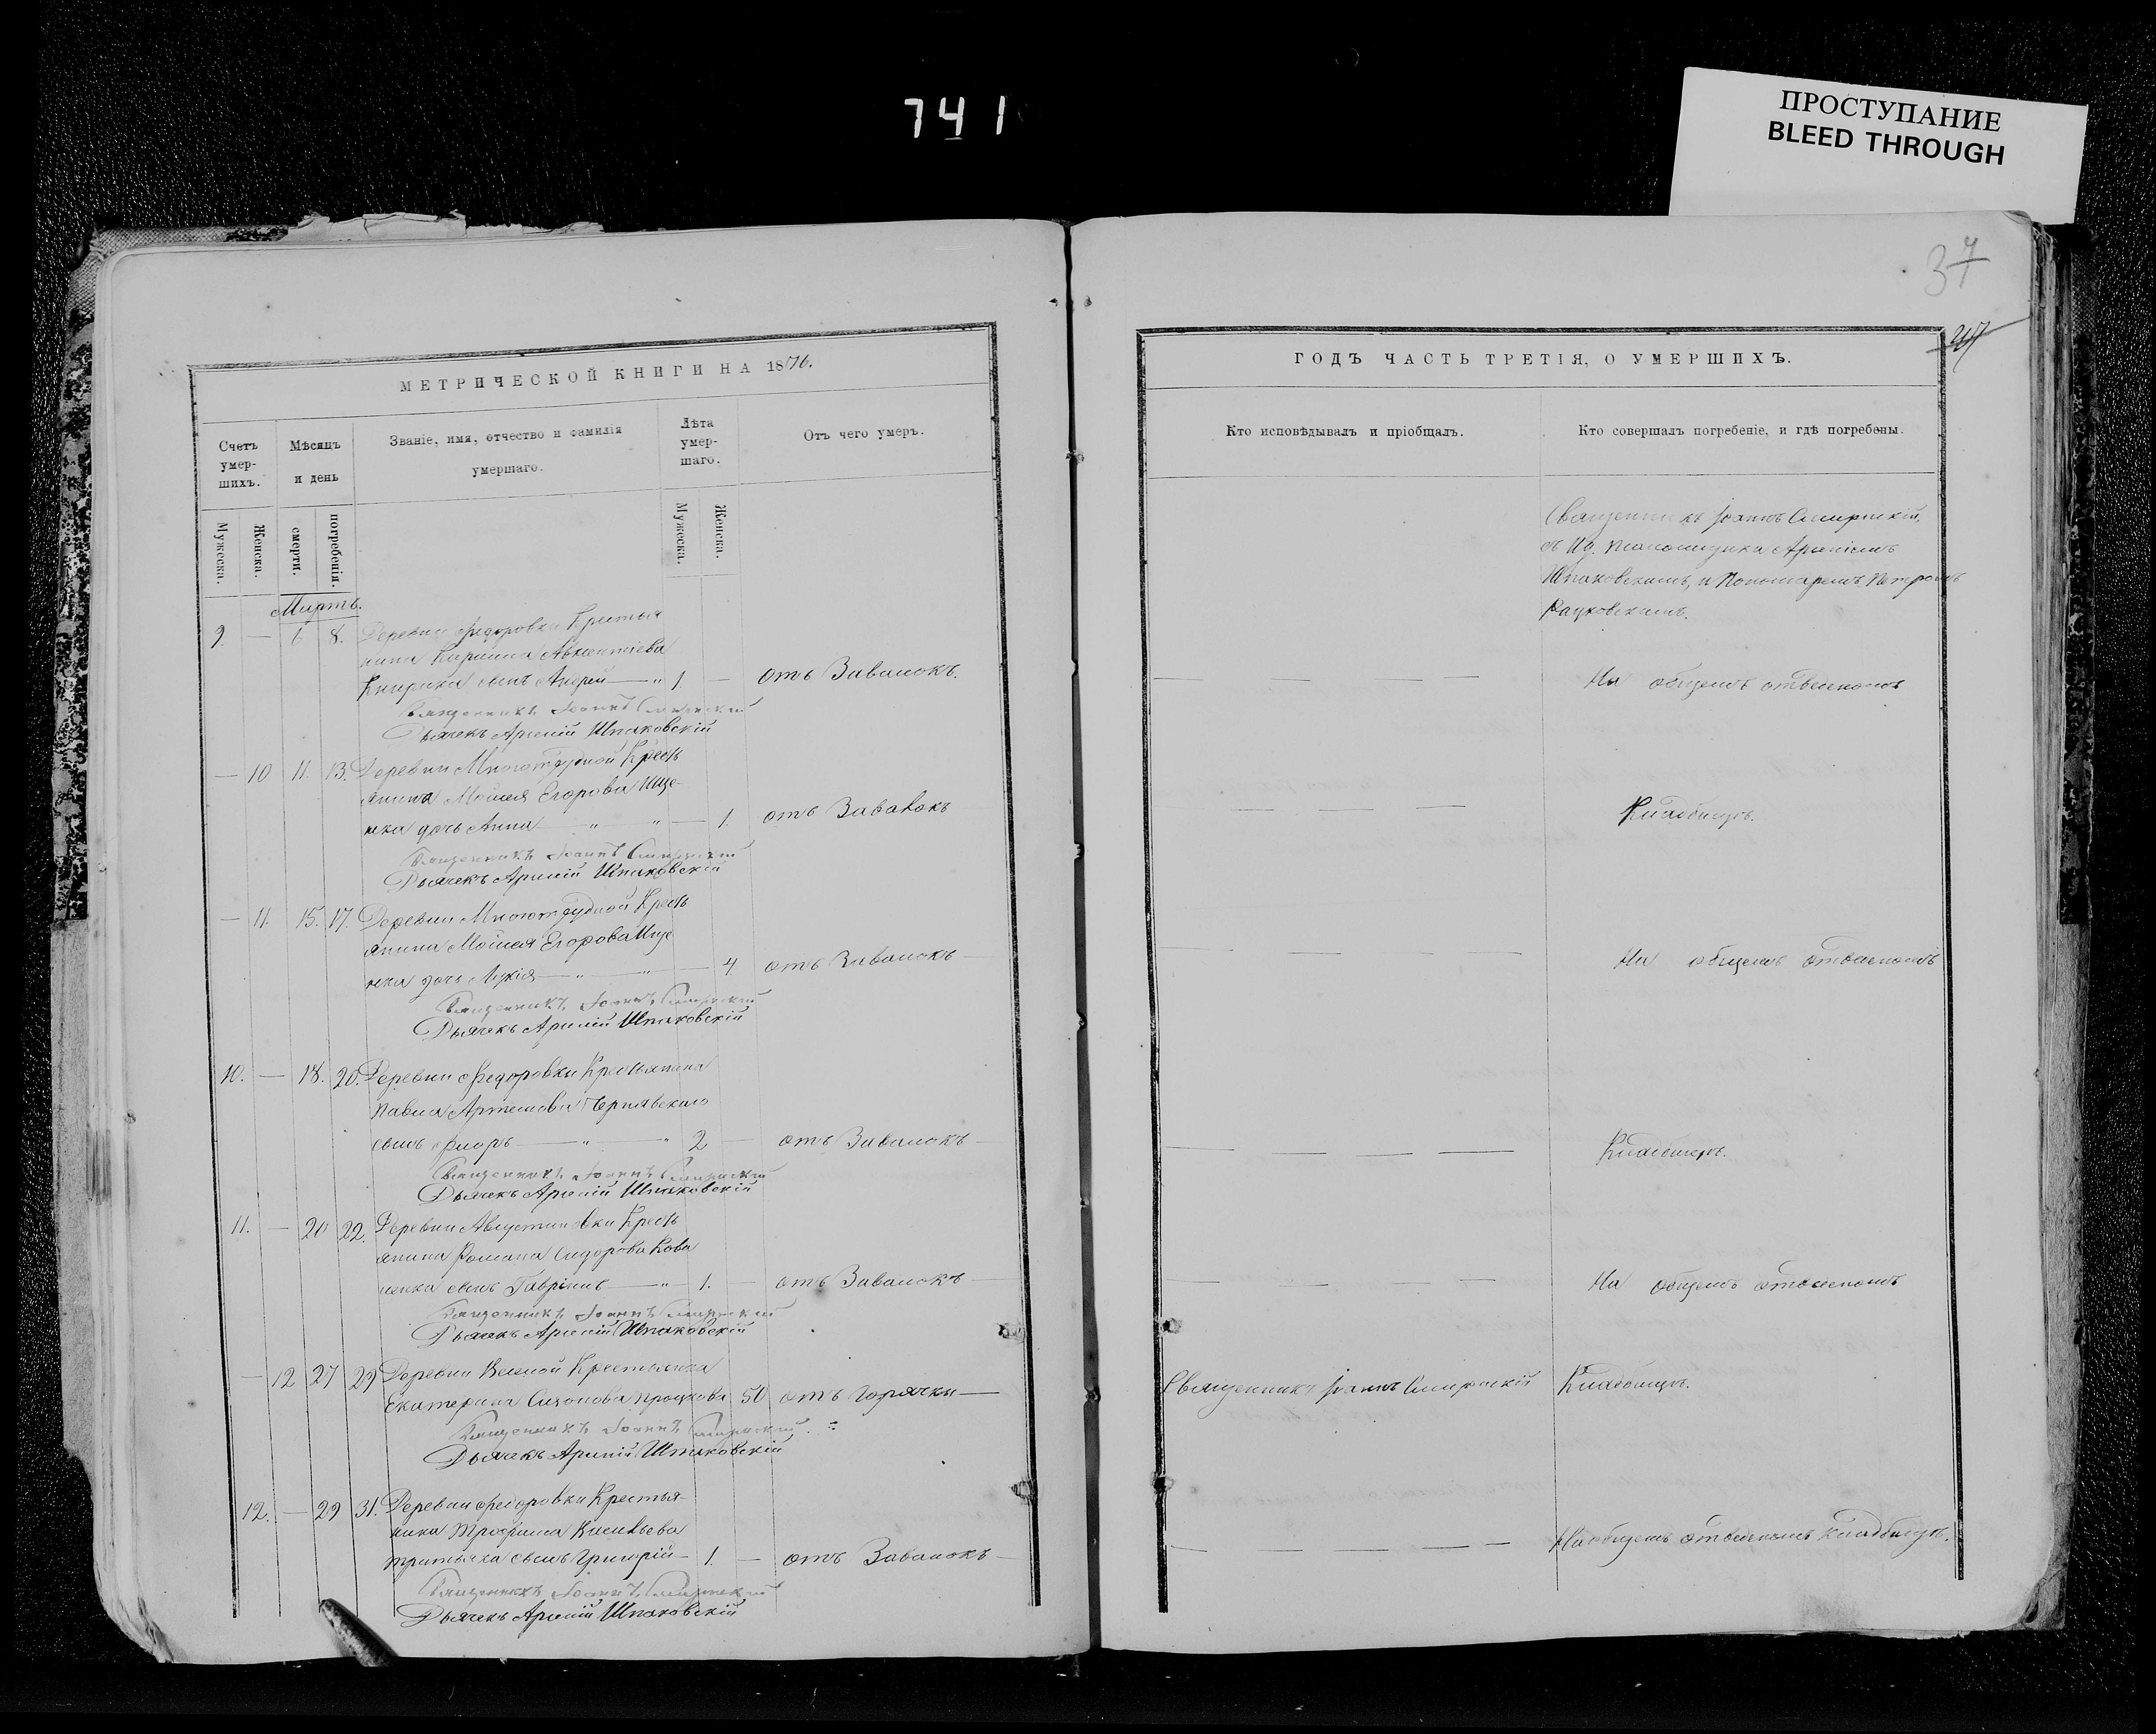 741
ПРОСТУПАНИЕ
BLEED THROUGH
37
МЕТРИЧЕСКОЙ КНИГИ НА 1870.
Счетъ умер-шихъ.
Мѣсяцъ и день
Званіе, имя, отчество и фамилія умершаго.
Лѣта умер-шаго.
Отъ чего умеръ.
Мужеска.
Женска.
смерти.
погребенія.
Мужеска.
Женска.
Мартъ.
9. — 6 8. Деревни Федоровки Крестья
нина Кирилла
сынъ Андрей — " 1. — отъ Завалокъ.
Священникъ Іоаннъ
Дьячекъ Арсеній Шпаковскій
— 10 11. 13. Деревни Многотрудной Кресть
янина Моисея Егорова Ище-
нка дочь Анна — " — " — 1. отъ Завалокъ
Священникъ Іоаннъ
Дьячекъ Арсеній Шпаковскій
— 11. 15. 17. Деревни Многотрудной Кресть
янина Моисея Егорова Ище
нка дочь Лукія — " — " — 4 отъ Завалокъ —
Священникъ Іоаннъ
Дьячекъ Арсеній Шпаковскій
10. — 18. 20. Деревни Федоровки Крестьянина
Павла Артемова Чернявскаго
сынъ Флоръ — " — " 2 — отъ Завалокъ —
Священникъ Іоаннъ
Дьячекъ Арсеній Шпаковскій
11. — 20 22. Деревни Августиновки Кресть
янина Романа Сидорова Кова
ленка сынъ Гавріилъ — " — 1. — отъ Завалокъ —
Священникъ Іоаннъ
Дьячекъ Арсеній Шпаковскій
— 12 27 29 Деревни Крестьянка
Екатерина Сизонова 50 отъ Горячки —
Священникъ Іоаннъ
Дьячекъ Арсеній Шпаковскій
12. — 29 31. Деревни Федоровки Крестья-
нина Трофима Васильева
сынъ Григорій — 1. — отъ Завалокъ —
Священникъ Іоаннъ
Дьячекъ Арсеній Шпаковскій
ГОДЪ ЧАСТЬ ТРЕТІЯ, О УМЕРШИХЪ.
Кто исповѣдывалъ и пріобщалъ.
Кто совершалъ погребеніе, и гдѣ погребены.
Священникъ Іоаннъ
съ Арсеніемъ
Шпаковскимъ, и Пономаремъ Петромъ
На общемъ отведенномъ
Кладбищѣ.
На общемъ отведенномъ
Кладбищѣ.
На общемъ отведенномъ
Священникъ Іоаннъ
Кладбищѣ.
На общемъ отведенномъ кладбищѣ.